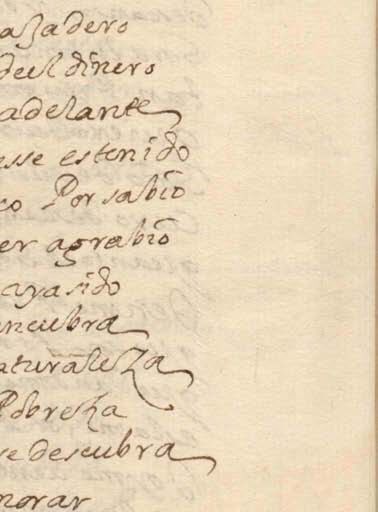 azadero
deel dinero
adelante
esse estenido
co Por sabio
er agrabio
aya sido
encubra
aturaleza
Pobreza
se descubra
morar